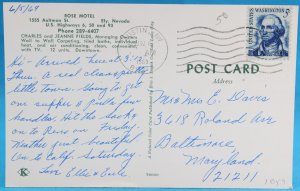 6/5/69
ROSE MOTEL
1555 Aultman St. Ely, Nevada
U.S. Highways 6, 50 and 93
Phone 289-4407
CHARLES and JEANNE FIELDS, Managing Owners
Wall to Wall Carpeting, tiled baths, individual
heat, and air conditioning, clean, convenient,
with TV. 12 units. Downtown
Hi - Arrived here at 3:15
Thurs. A real clean, pretty
Little Town. Going to get
our supper & pull a few
handles. Hit the sack
on to Reno on Friday.
Weather just beautiful
On to Calif. Saturday.
Love Ellie &
K
POST CARD
Address
Mr & Mrs E. Davis
3618 Roland Ave
Baltimore
Maryland.
21211
5c
WASHINGTON
50